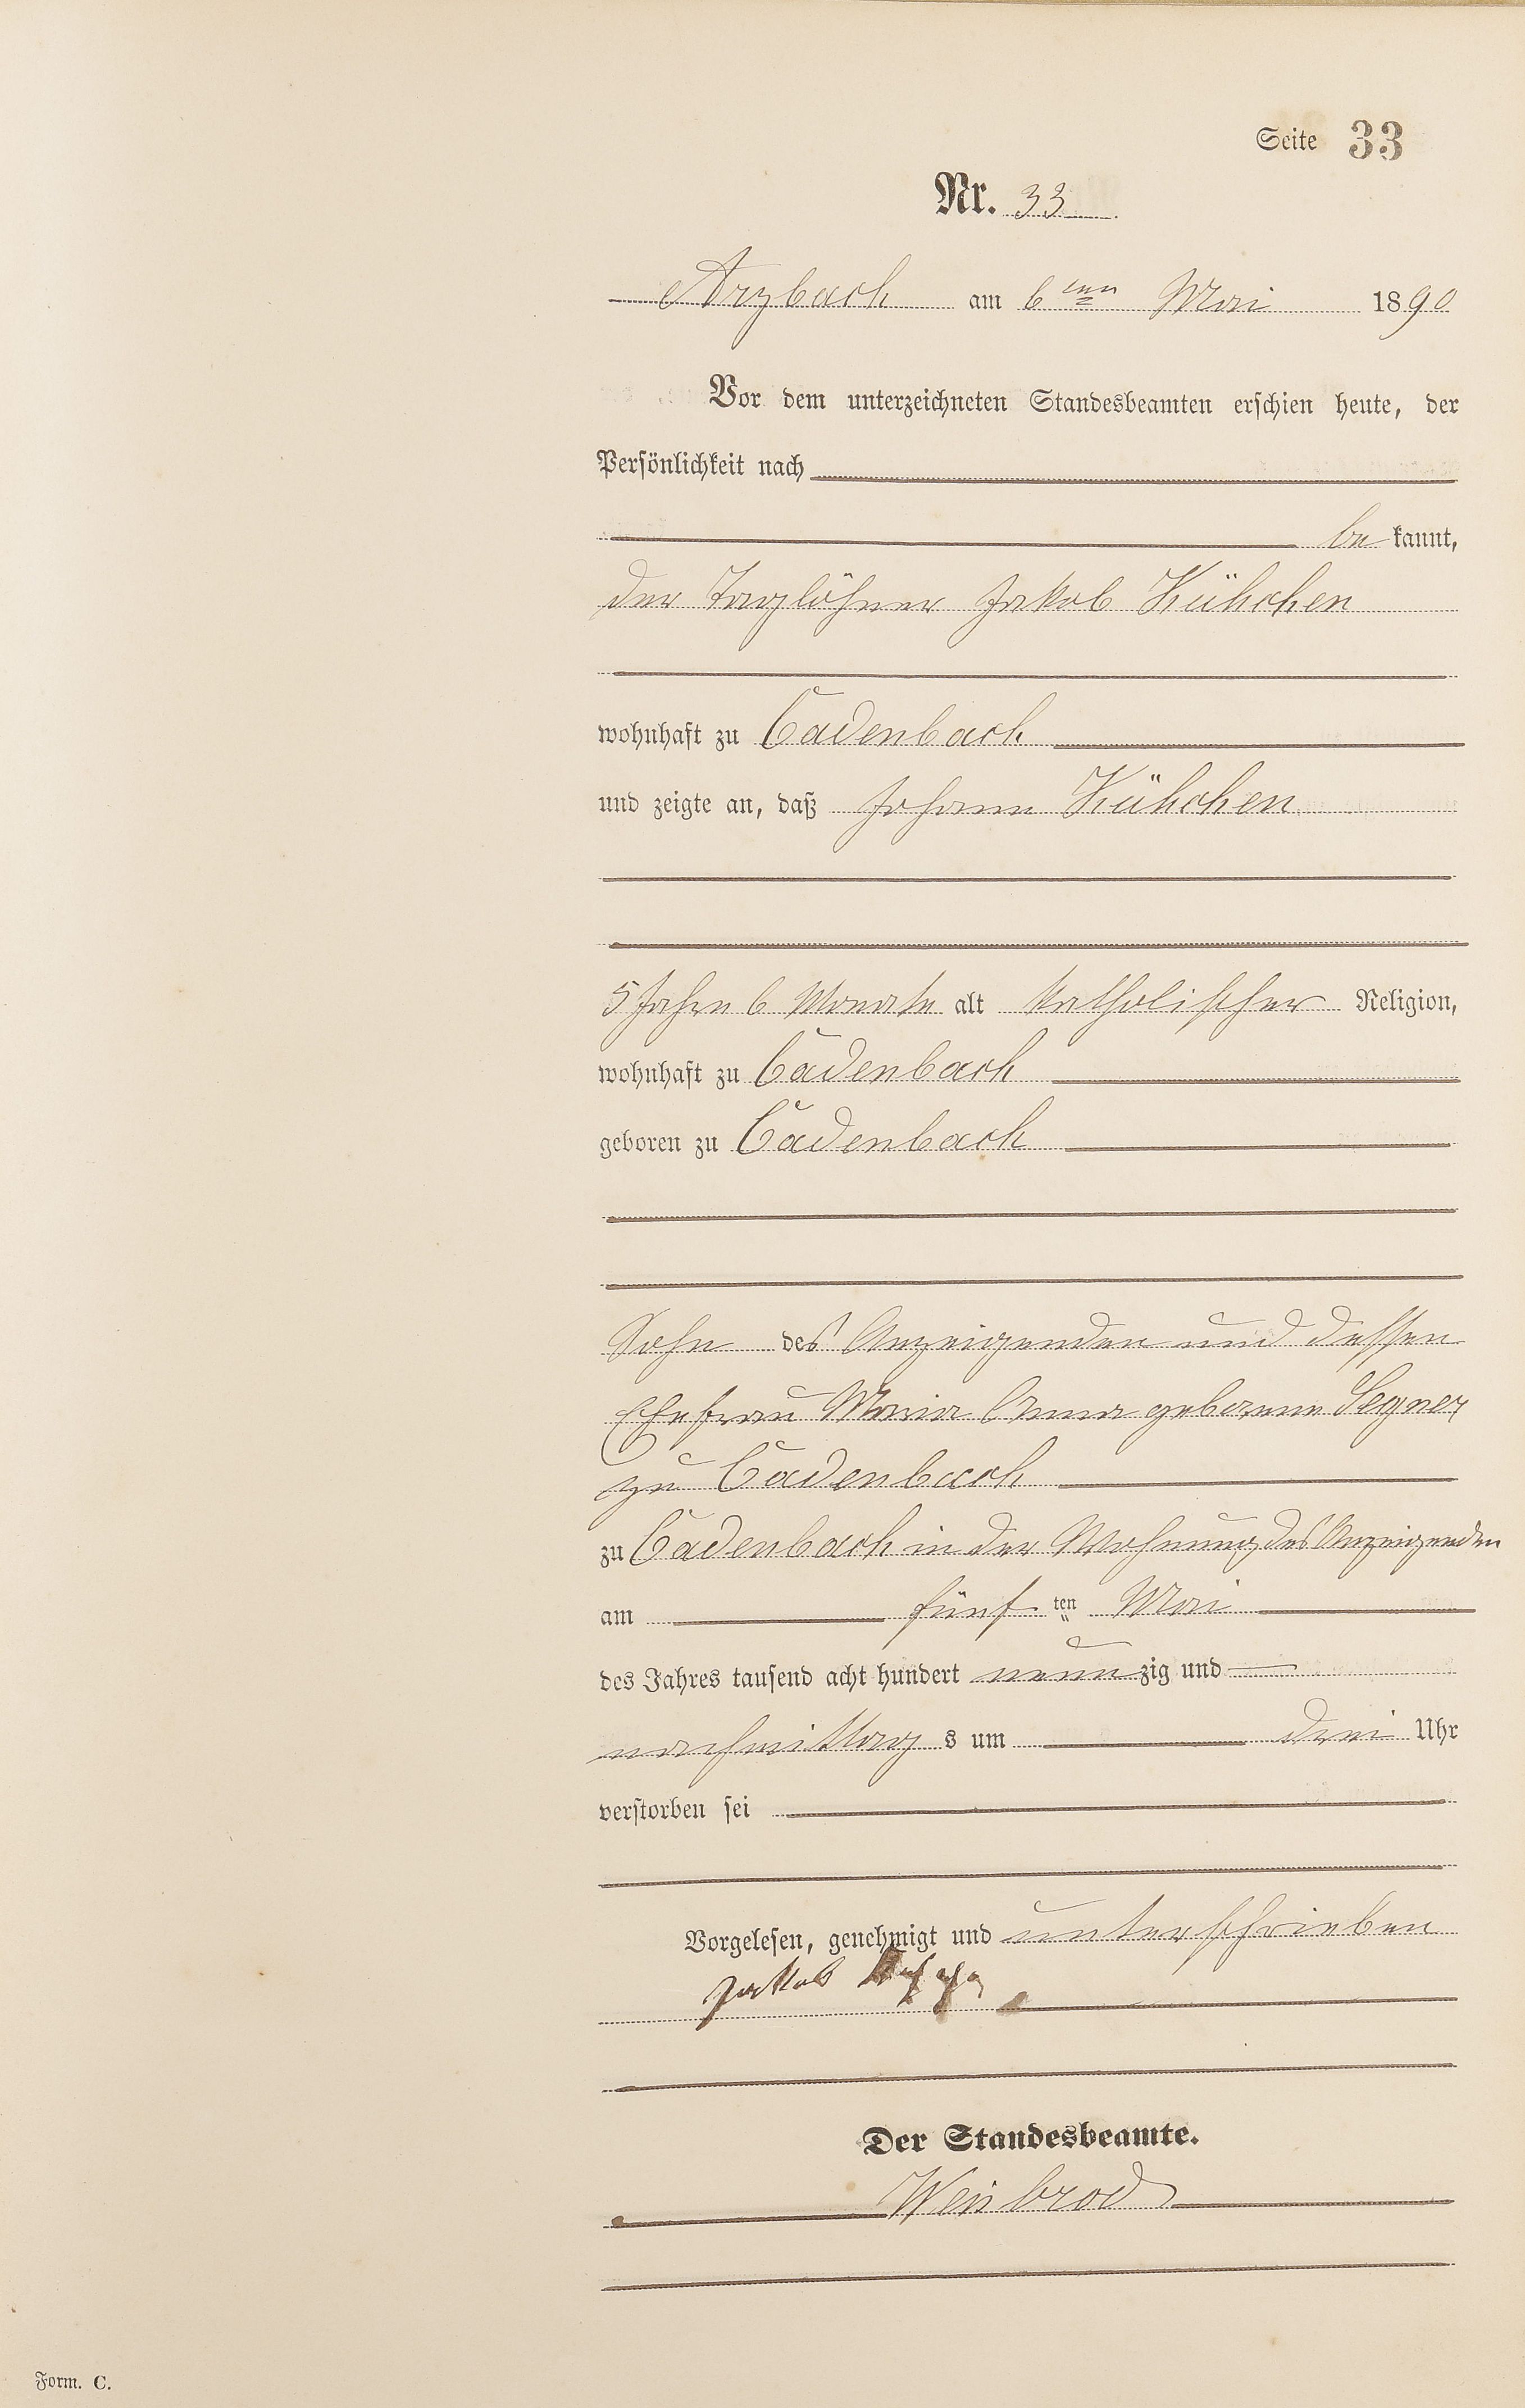 Seite 33
Nr. 33
Arzbach am 6ten Mai 1890
Vor dem unterzeichneten Standesbeamten erschien heute, der
Persönlichkeit nach
be kannt,
der Taglöhner Jakob Kühchen
wohnhaft zu Cadenbach
und zeigte an, daß Johann Kühchen
5 Jahre 6 Monate alt katholischer Religion,
wohnhaft zu Cadenbach
geboren zu Cadenbach
Sohn des Anzeigenden und dessen
Ehefrau Maria Anna geborene Segner
zu Cadenbach
zu Cadenbach in der Wohnung des Anzeigenden
am fünf ten Mai
des Jahres tausend acht hundert neun zig und
nachmittag s um drei Uhr
verstorben sei
Vorgelesen, genehmigt und unterschrieben
Jakob
Der Standesbeamte.
Weisbrod
Form. C.